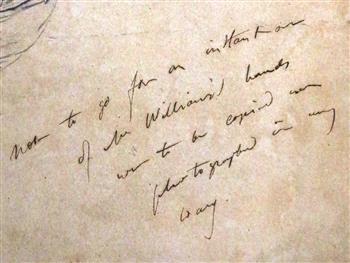 not to go for an instant out
of Mr William's hands
nor to be copied nor
photographed in any
way.